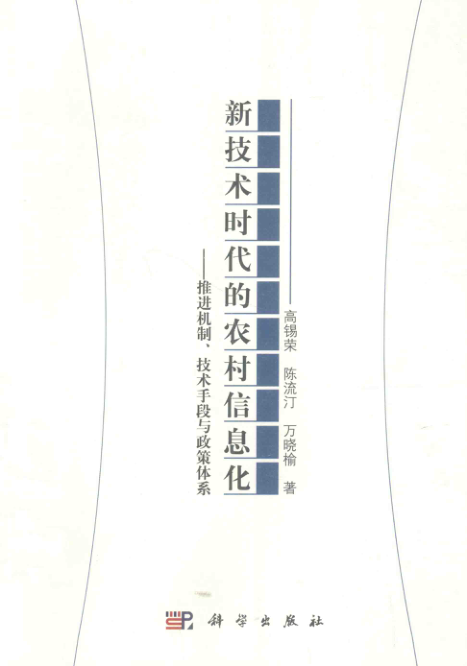 高锡荣 陈流汀 万晓榆 著
新技术时代的农村信息化
——推进机制、技术手段与政策体系
SP
科学出版社